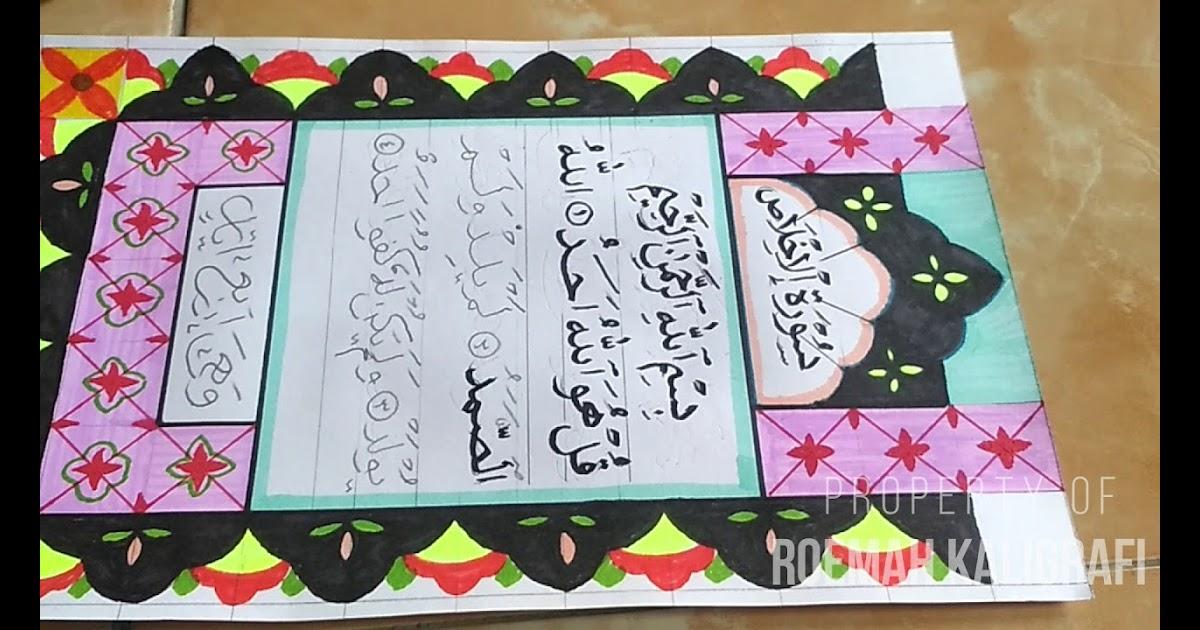 سُوْرَةُ الْإِخْلَاصِ
بِسْمِ اللّٰهِ الرَّحْمٰنِ الرَّحِيْمِ
قُلْ هُوَ اللّٰهُ اَحَدٌ ١ اَللّٰهُ
الصَّمَدُ ٢ لَمْ يَلِدْ وَلَمْ
يُوْلَدْ ٣ وَلَمْ يَكُنْ لَهُ كُفُوًا اَحَدٌ ٤
وَهِيَ اَرْبَعُ اٰيَاتٍ
PROPERTY OF
ROEMAH KALIGRAFI